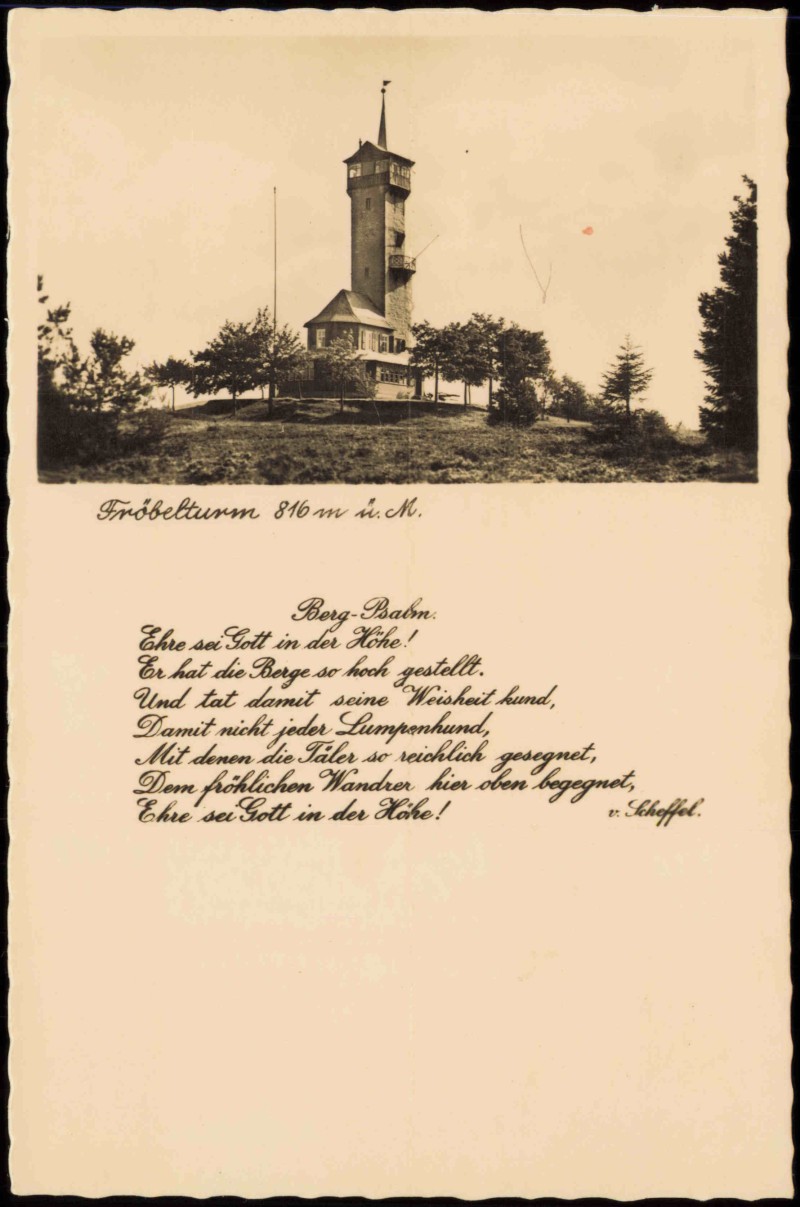 Fröbelturm 816 m ü. M.
Berg-Psalm.
Ehre sei Gott in der Höhe!
Er hat die Berge so hoch gestellt.
Und tat damit seine Weisheit kund,
Damit nicht jeder Lumpenhund,
Mit denen die Täler so reichlich gesegnet,
Dem fröhlichen Wandrer hier oben begegnet,
Ehre sei Gott in der Höhe! v. Scheffel.